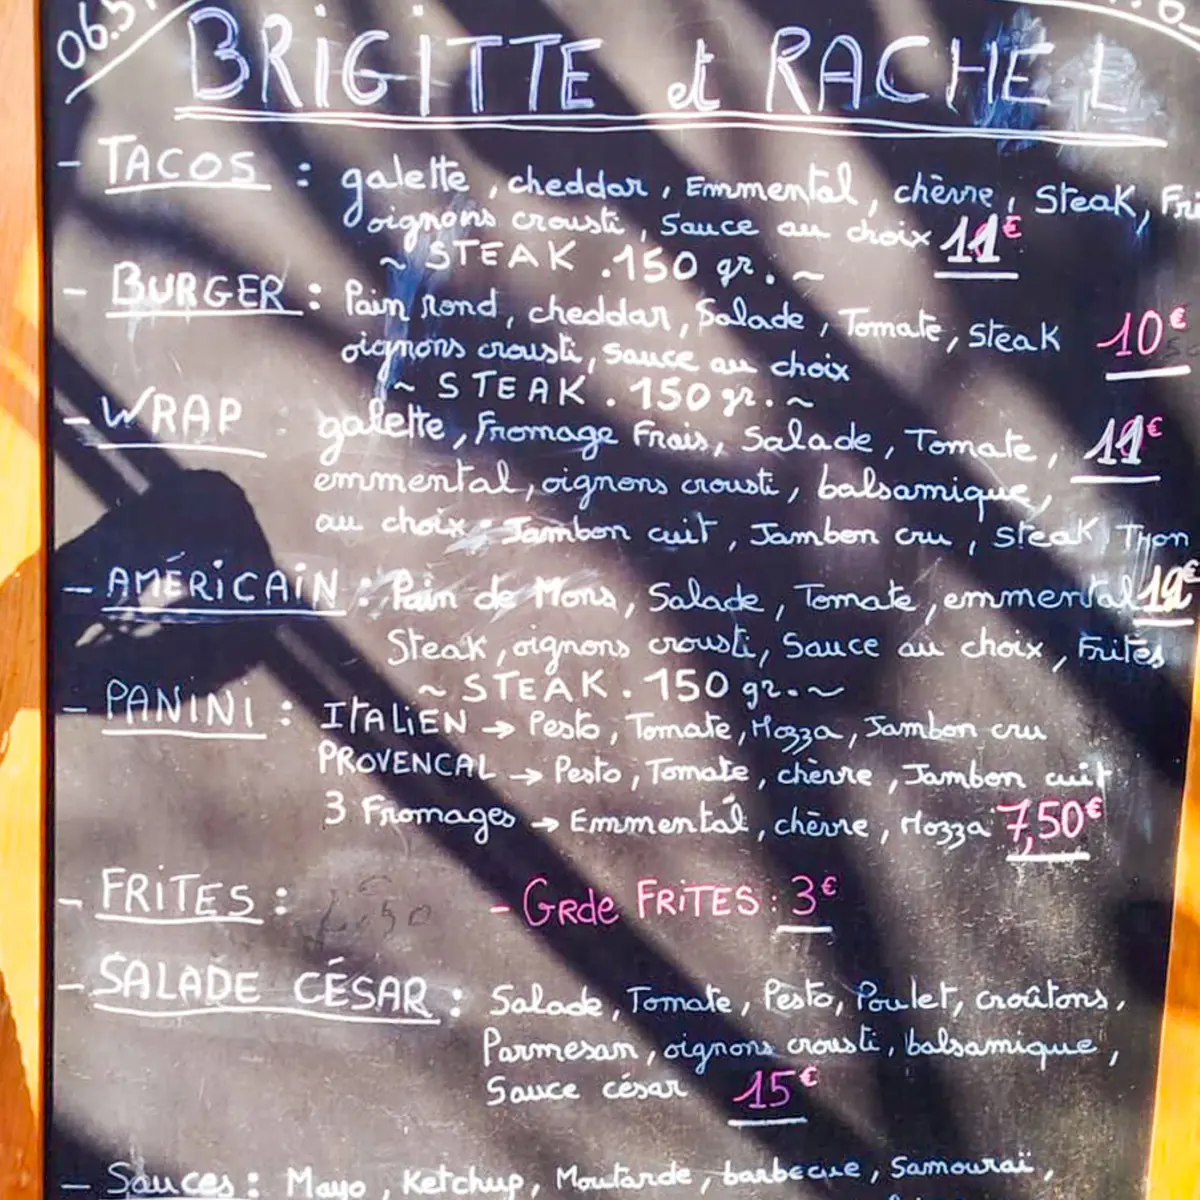 BRIGITTE et RACHEL
- TACOS : galette, cheddar, Emmental, chèvre, Steak, Fri
oignons crousti, Sauce au choix 11€
~ STEAK . 150 gr. ~
- BURGER : Pain rond, cheddar, Salade, Tomate, Steak 10€
oignons crousti, sauce au choix
~ STEAK . 150 gr. ~
- WRAP : galette, Fromage Frais, Salade, Tomate, 11€
emmental, oignons crousti, balsamique,
au choix : Jambon cuit, Jambon cru, Steak, Thon
- AMÉRICAIN : Pain de Mons, Salade, Tomate, emmental
Steak, oignons crousti, Sauce au choix, Frites
~ STEAK . 150 gr. ~
- PANINI : ITALIEN → Pesto, Tomate, Mozza, Jambon cru
PROVENCAL → Pesto, Tomate, chèvre, Jambon cuit
3 Fromages → Emmental, chèvre, Mozza 7,50€
- FRITES : - GRde FRITES : 3€
- SALADE CÉSAR : Salade, Tomate, Pesto, Poulet, croûtons,
Parmesan, oignons crousti, balsamique,
Sauce césar 15€
- Sauces : Mayo, Ketchup, Moutarde, barbecue, Samouraï,